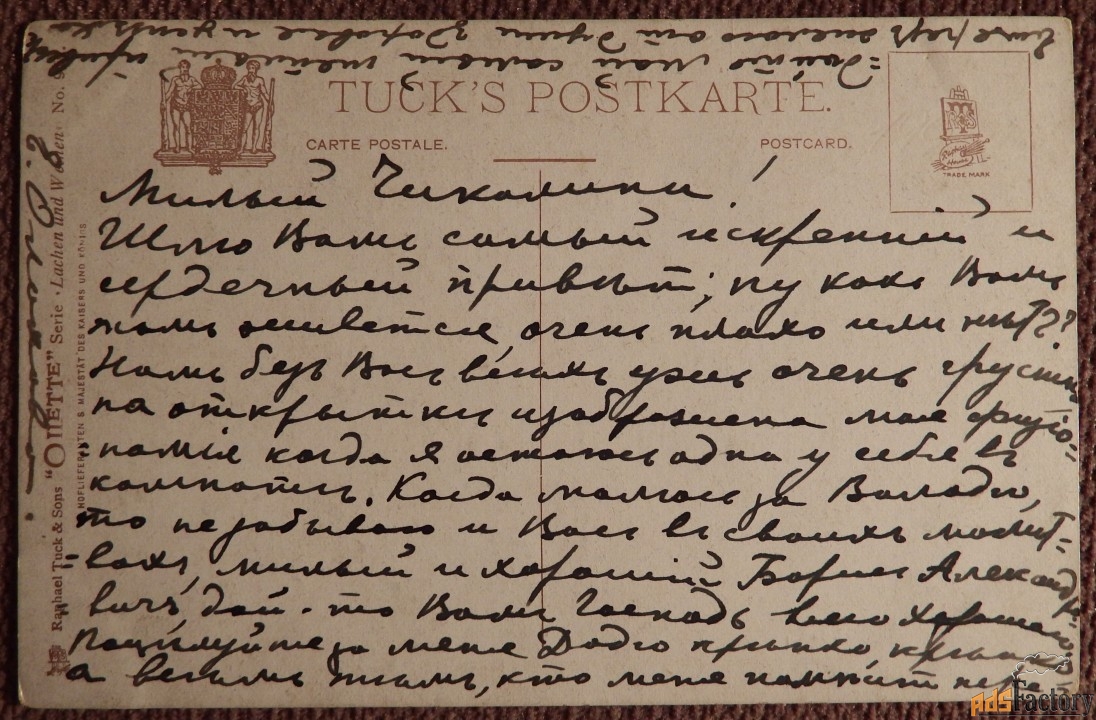 TUCK'S POSTKARTE.
CARTE POSTALE.
POSTCARD.
TRADE MARK
Raphael Tuck & Sons "OILETTE" Serie · Lachen und Weinen · No. 9
HOFLIEFERANTEN S. MAJESTÄT DES KAISERS UND KÖNIGS
Милый !
Шлю Вамъ самый искренній и
сердечный привѣтъ; ну какъ Вамъ
тамъ живется очень плохо или нѣтъ??
Намъ безъ Васъ всѣмъ ужъ очень грустно
на открыткѣ изображена моя физіо-
=номія когда я остаюсь одна у себя въ
комнатѣ. Когда молюсь за Володю,
то не забываю и Васъ въ своихъ молит=
=вахъ, милый и хорошій Борисъ Александро
вичъ, дай-то Вамъ Господь всего хорошаго.
Поцѣлуйте за меня Додю крѣпко крѣпко
а всѣмъ тѣмъ, кто меня помнитъ пере=
=дайте мой самый теплый привѣтъ
Еще разъ желаю отъ души здоровья и успѣха
adsFactory